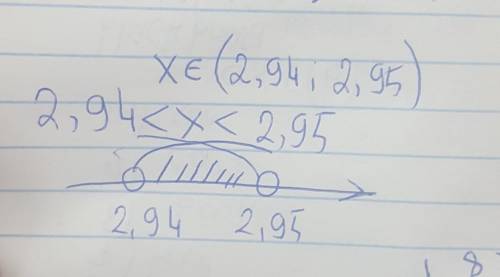 x∈(2,94; 2,95)
2,94<x<2,95
2,94 2,95
8